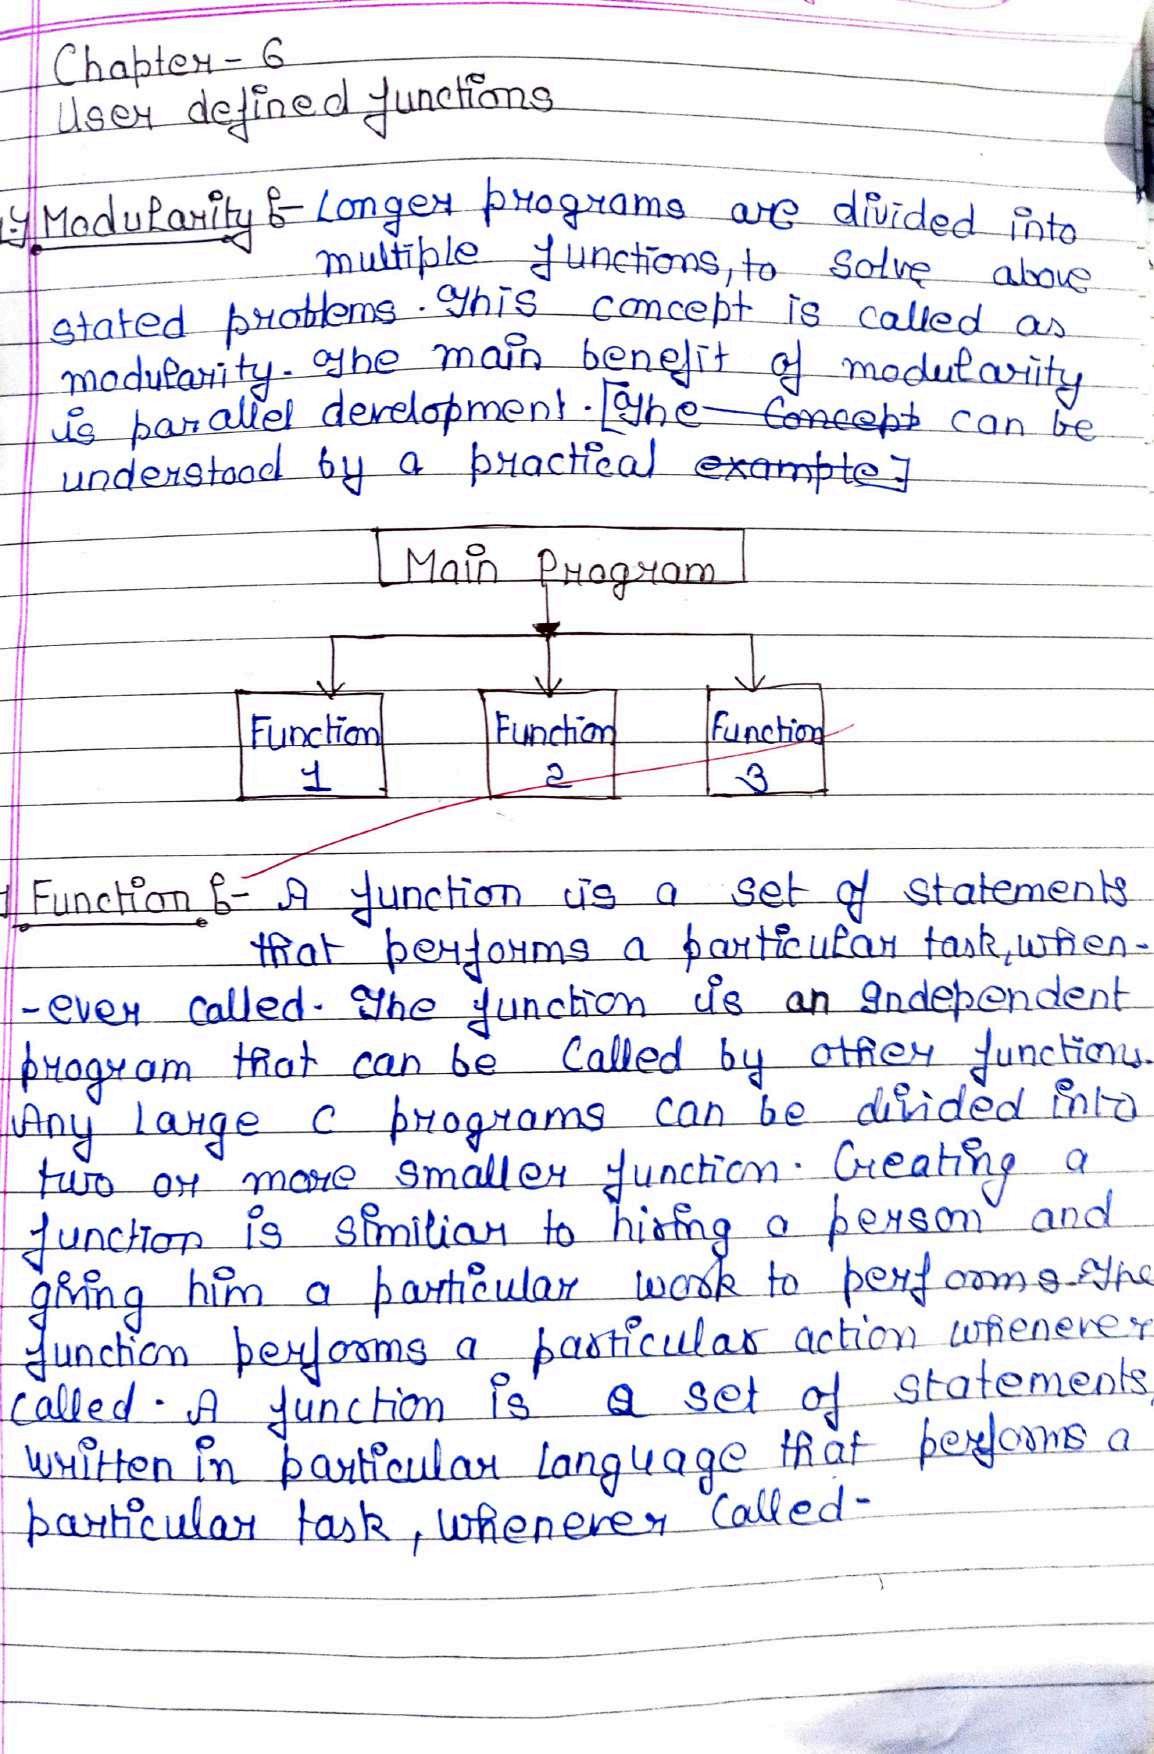 Chapter - 6
User defined functions
1.) Modularity :- Longer programs are divided into
multiple functions, to solve above
stated problems. This concept is called as
modularity. The main benefit of modulariity
is parallel development. [The Concept can be
understood by a practical example]
Main Program
Function Function Function
1 2 3
Function :- A function is a set of statements
that performs a particular task, when-
-ever called. The function is an Independent
program that can be Called by other functions.
Any Large C programs can be divided into
two or more smaller function. Creating a
function is similiar to hiring a person and
giving him a particular work to performs. The
function performs a particular action whenever
called. A function is a set of statements
written in particular language that performs a
particular task, whenever Called-